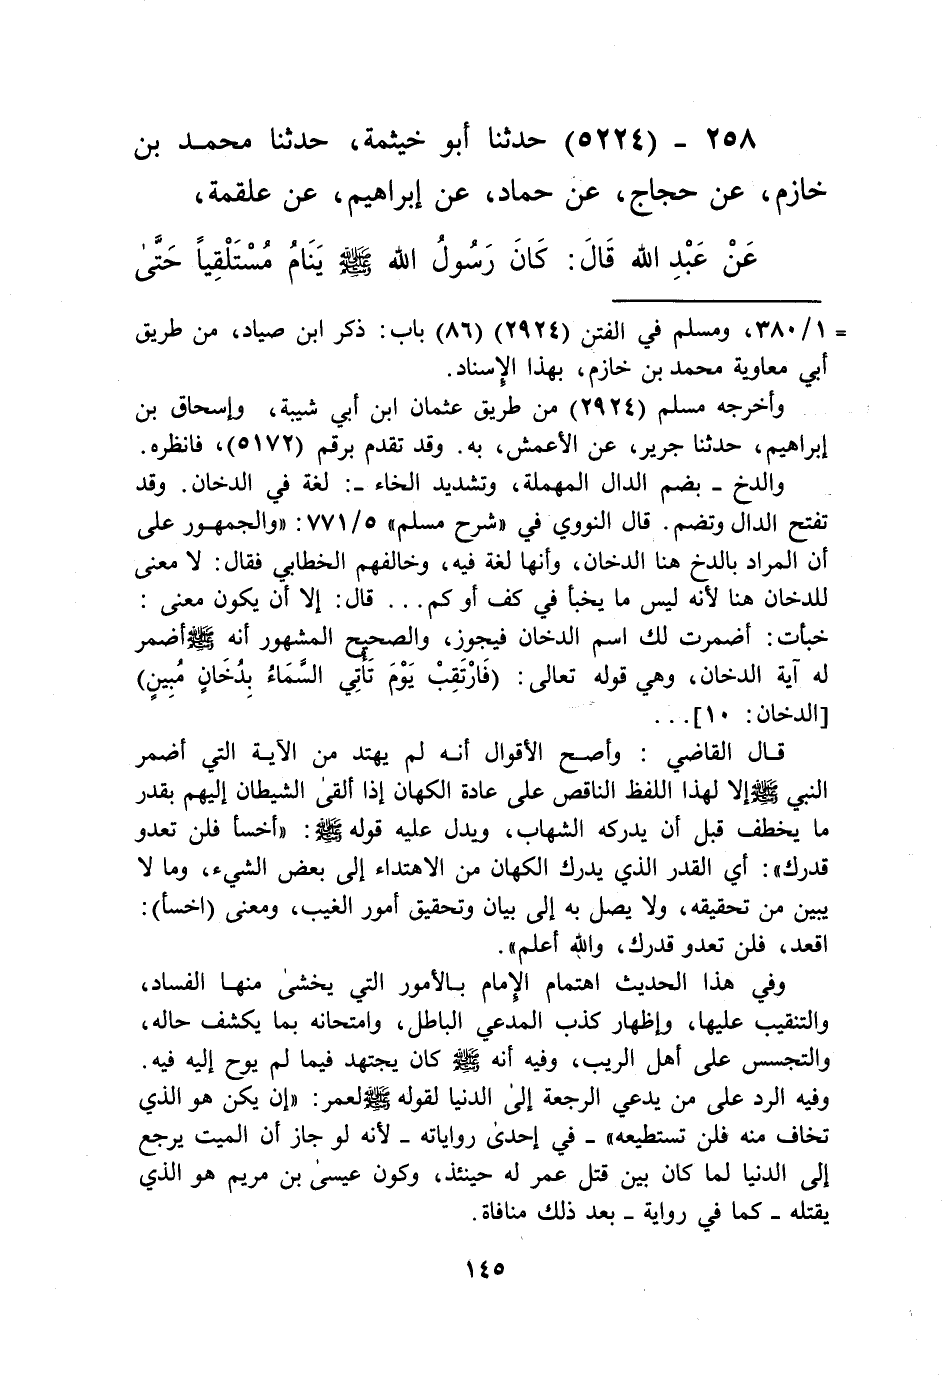 ٢٥٨ - (٥٢٢٤) حدثنا أبو خيثمة، حدثنا محمد بن
خازم، عن حجاج، عن حماد، عن إبراهيم، عن علقمة،
عَنْ عَبْدِ الله قَالَ: كَانَ رَسُولُ الله ﷺ يَنَامُ مُسْتَلْقِياً حَتَّىٰ
= ٣٨٠/١، ومسلم في الفتن (٢٩٢٤) (٨٦) باب: ذكر ابن صياد، من طريق
أبي معاوية محمد بن خازم، بهذا الإسناد.
وأخرجه مسلم (٢٩٢٤) من طريق عثمان ابن أبي شيبة، وإسحاق بن
إبراهيم، حدثنا جرير، عن الأعمش، به. وقد تقدم برقم (٥١٧٢)، فانظره.
والدخ - بضم الدال المهملة، وتشديد الخاء -: لغة في الدخان. وقد
تفتح الدال وتضم. قال النووي في «شرح مسلم» ٧٧١/٥: «والجمهور على
أن المراد بالدخ هنا الدخان، وأنها لغة فيه، وخالفهم الخطابي فقال: لا معنى
للدخان هنا لأنه ليس ما يخبأ في كف أو كم... قال: إلا أن يكون معنى :
خبأت: أضمرت لك اسم الدخان فيجوز، والصحيح المشهور أنه ﷺ أضمر
له آية الدخان، وهي قوله تعالى: (فَارْتَقِبْ يَوْمَ تَأْتِي السَّمَاءُ بِدُخَانٍ مُبِينٍ)
[الدخان: ١٠]...
قال القاضي : وأصح الأقوال أنه لم يهتد من الآية التي أضمر
النبي ﷺ إلا لهذا اللفظ الناقص على عادة الكهان إذا ألقىٰ الشيطان إليهم بقدر
ما يخطف قبل أن يدركه الشهاب، ويدل عليه قوله ﷺ: «أخسأ فلن تعدو
قدرك»: أي القدر الذي يدرك الكهان من الاهتداء إلى بعض الشيء، وما لا
يبين من تحقيقه، ولا يصل به إلى بيان وتحقيق أمور الغيب، ومعنى (اخسأ):
اقعد، فلن تعدو قدرك، والله أعلم».
وفي هذا الحديث اهتمام الإمام بالأمور التي يخشىٰ منها الفساد،
والتنقيب عليها، وإظهار كذب المدعي الباطل، وامتحانه بما يكشف حاله،
والتجسس على أهل الريب، وفيه أنه ﷺ كان يجتهد فيما لم يوح إليه فيه.
وفيه الرد على من يدعي الرجعة إلىٰ الدنيا لقوله ﷺ لعمر: «إن يكن هو الذي
تخاف منه فلن تستطيعه» - في إحدىٰ رواياته - لأنه لو جاز أن الميت يرجع
إلى الدنيا لما كان بين قتل عمر له حينئذ، وكون عيسىٰ بن مريم هو الذي
يقتله - كما في رواية - بعد ذلك منافاة.
١٤٥